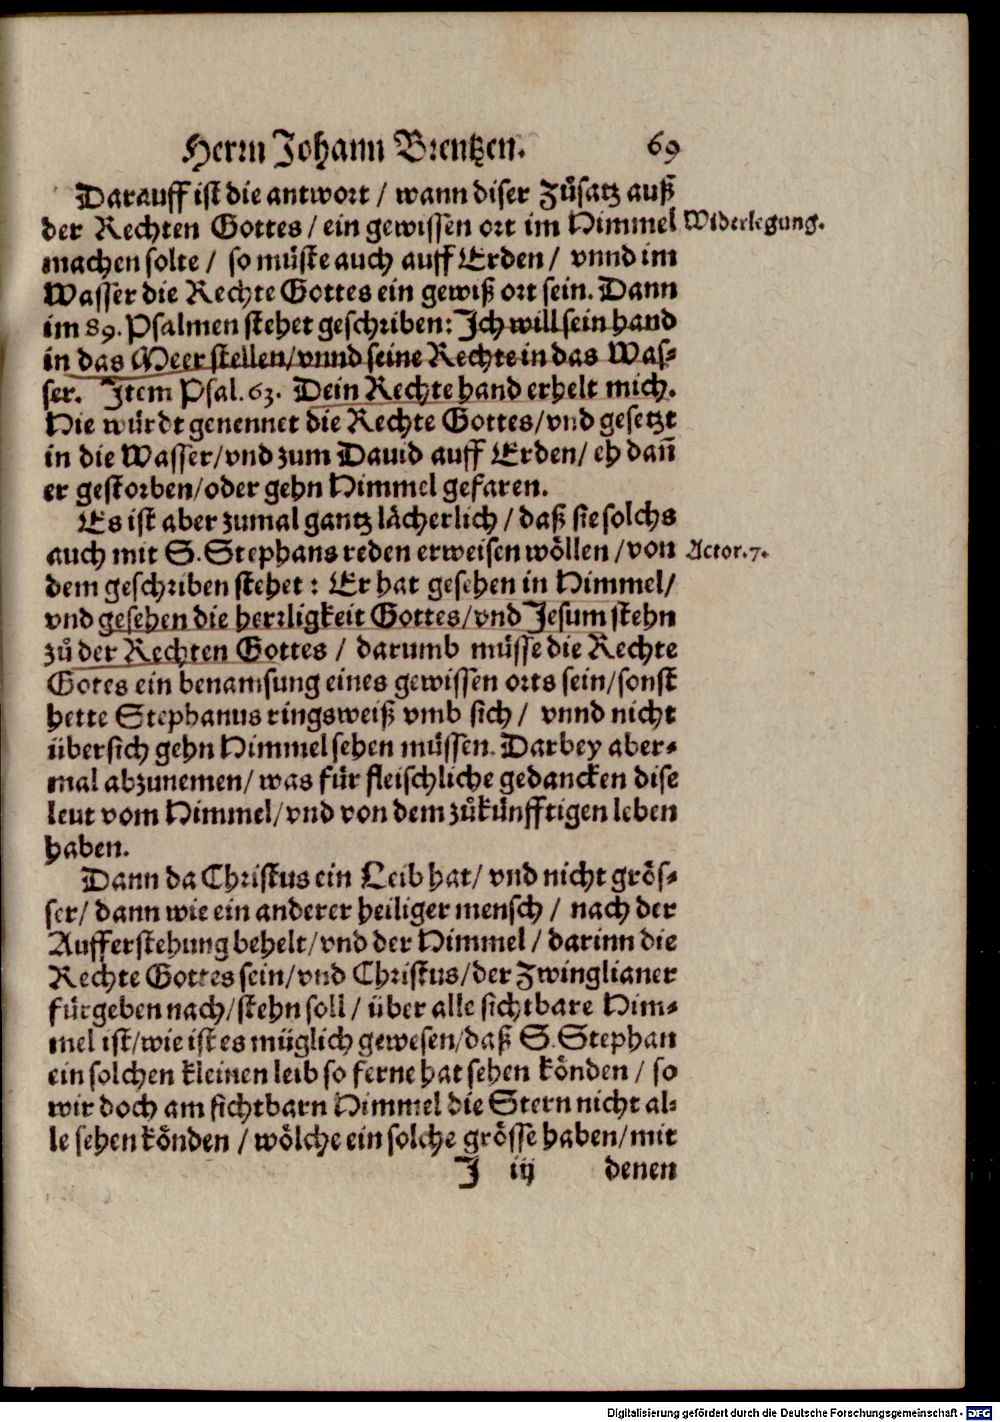 Herrn Johann Brentzen. 69
Darauff ist die antwort / wann diser Zůsatz auß
der Rechten Gottes / ein gewissen ort im Himmel
Widerlegung.
machen solte / so müste auch auff Erden / vnnd im
Wasser die Rechte Gottes ein gewiß ort sein. Dann
im 89. Psalmen stehet geschriben: Ich will sein hand
in das Meer stellen/vnnd seine Rechte in das Was-
ser. Item Psal. 63. Dein Rechte hand erhelt mich.
Hie würdt genennet die Rechte Gottes/vnd gesetzt
in die Wasser/vnd zum Dauid auff Erden/ eh dañ
er gestorben/oder gehn Himmel gefaren.
Es ist aber zumal gantz lächerlich / daß sie solchs
auch mit S. Stephans reden erweisen wöllen / von
Actor. 7.
dem geschriben stehet : Er hat gesehen in Himmel/
vnd gesehen die herrligkeit Gottes/vnd Jesum stehn
zů der Rechten Gottes / darumb müsse die Rechte
Gotes ein benamsung eines gewissen orts sein/sonst
hette Stephanus ringsweiß vmb sich / vnnd nicht
übersich gehn Himmel sehen müssen. Darbey aber-
mal abzunemen/ was für fleischliche gedancken dise
leut vom Himmel/vnd von dem zůkünfftigen leben
haben.
Dann da Christus ein Leib hat/ vnd nicht grös-
ser/ dann wie ein anderer heiliger mensch / nach der
Aufferstehung behelt/vnd der Himmel / darinn die
Rechte Gottes sein/vnd Christus/der Zwinglianer
fürgeben nach/stehn soll / über alle sichtbare Him-
mel ist/wie ist es müglich gewesen/daß S. Stephan
ein solchen kleinen leib so ferne hat sehen könden / so
wir doch am sichtbarn Himmel die Stern nicht al-
le sehen könden / wölche ein solche grösse haben/mit
J iij denen
Digitalisierung gefördert durch die Deutsche Forschungsgemeinschaft - DFG